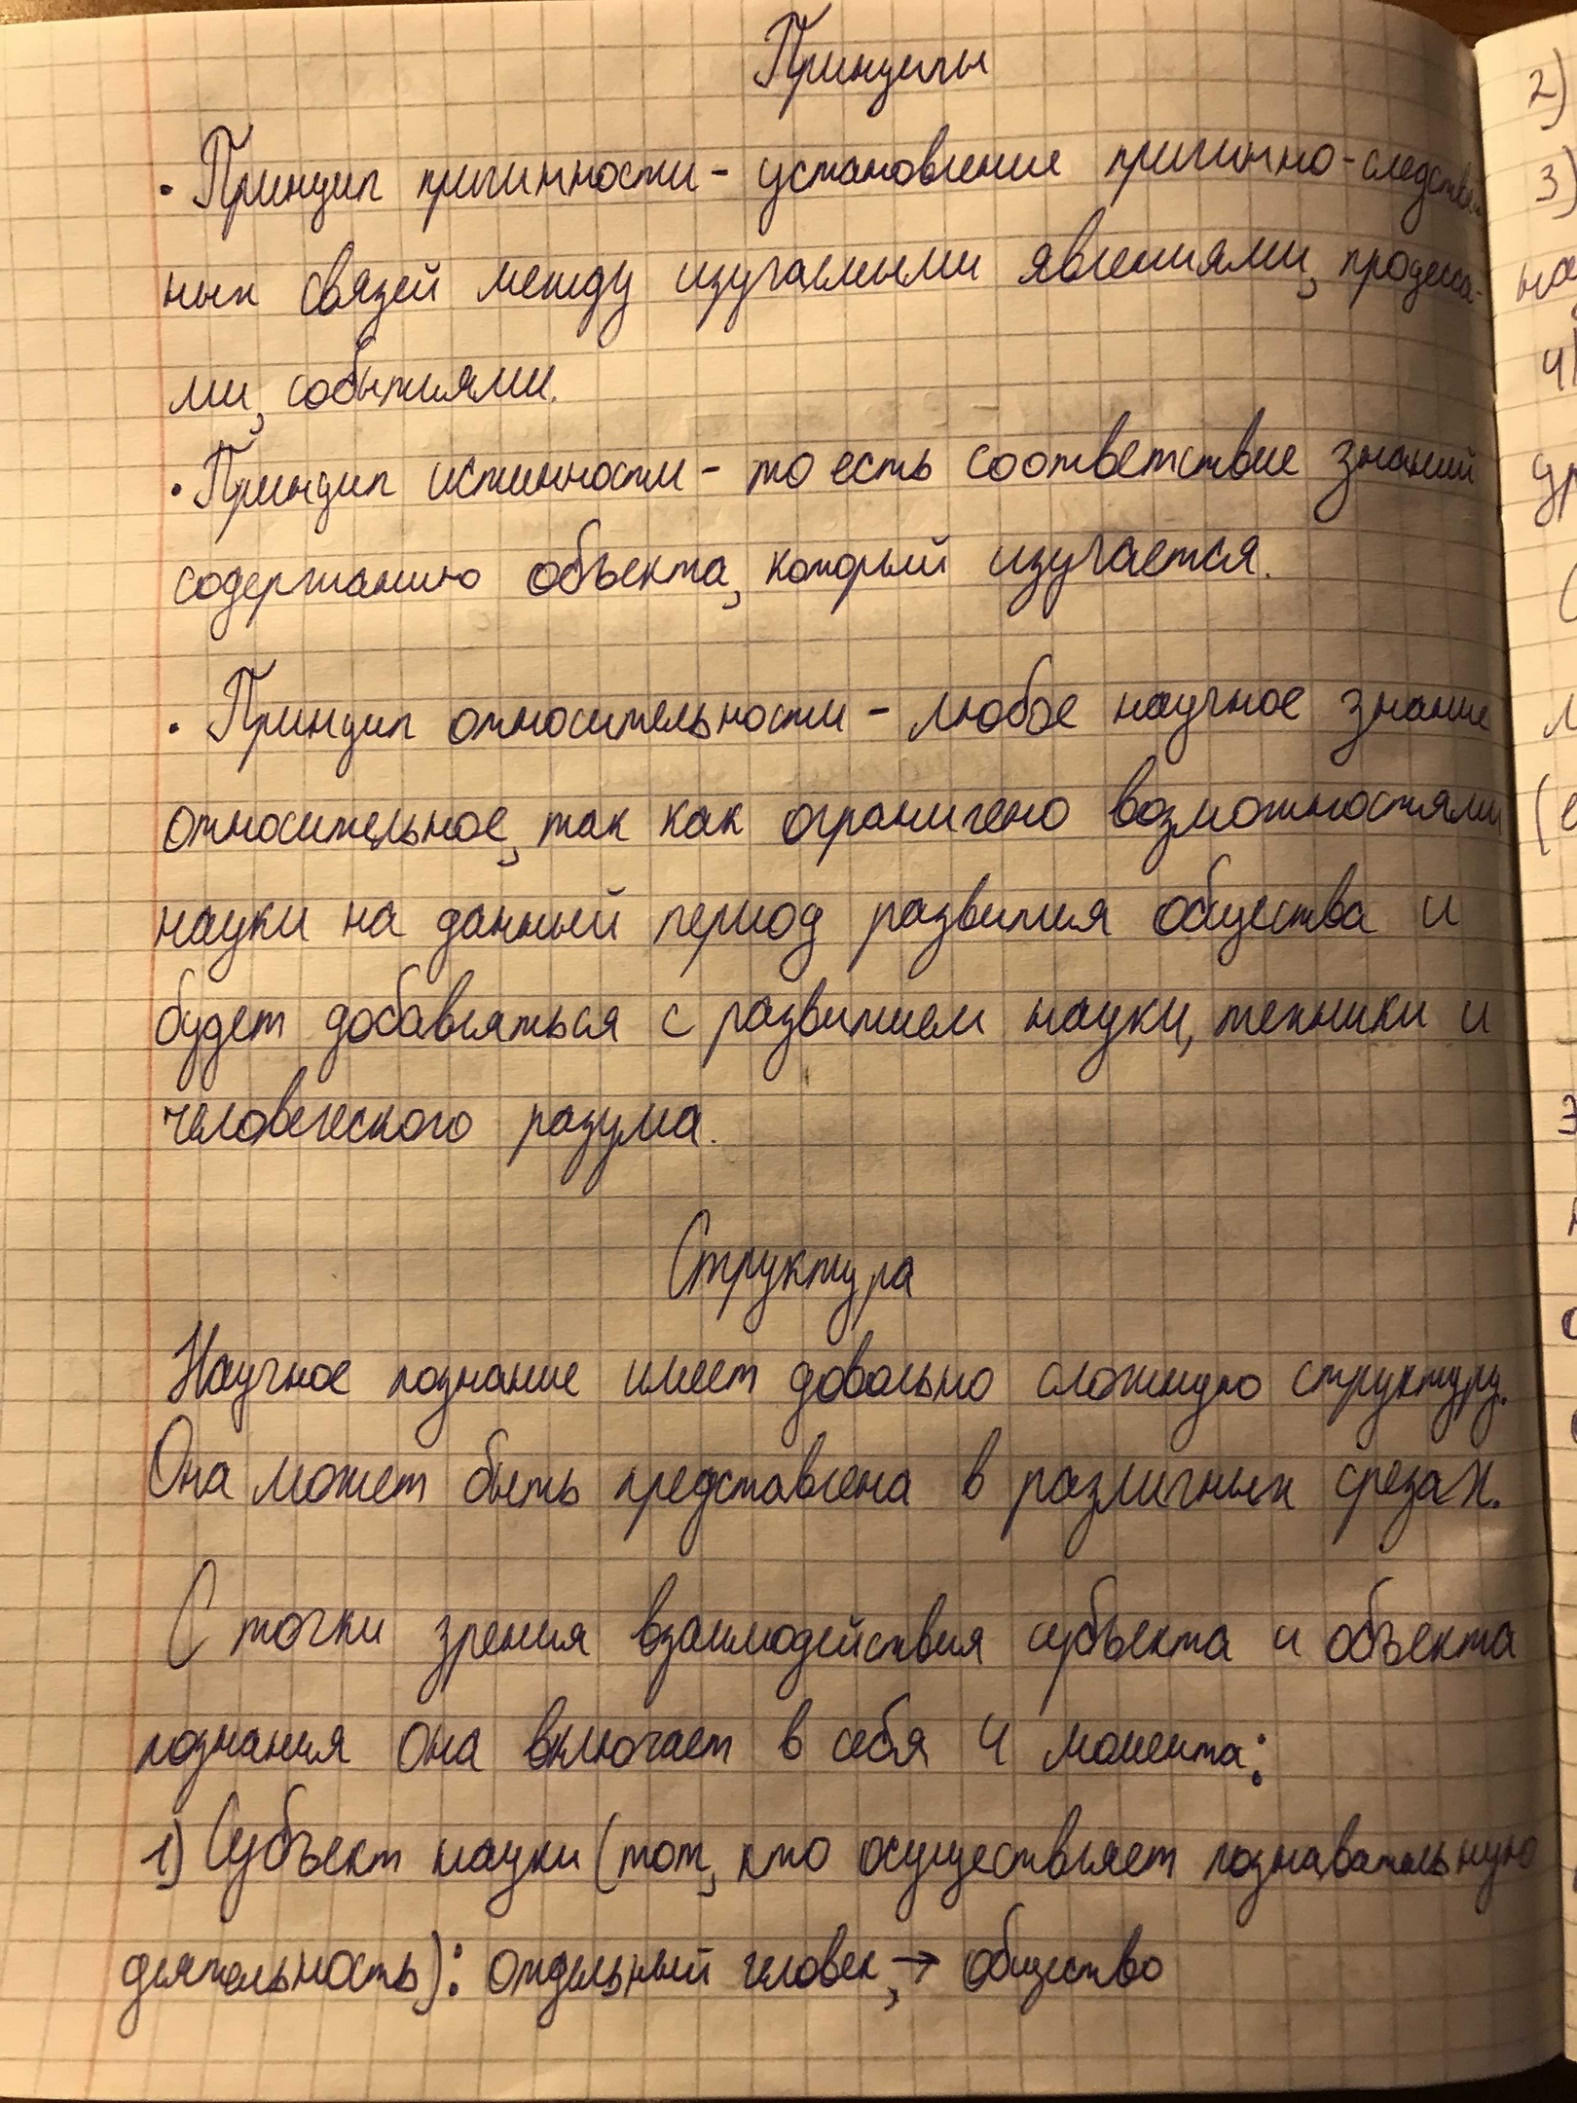 Принципы
• Принцип причинности - установление причинно-следствен
ных связей между изучаемыми явлениями, процесса-
ми, событиями.
• Принцип истинности - то есть соответствие знаний
содержанию объекта, который изучается.
• Принцип относительности - любое научное знание
относительное, так как ограничено возможностями
науки на данный период развития общества и
будет добавляться с развитием науки, техники и
человеческого разума.
Структура
Научное познание имеет довольно сложную структуру.
Она может быть представлена в различных срезах.
С точки зрения взаимодействия субъекта и объекта
познания она включает в себя 4 момента:
1) Субъект науки (тот, кто осуществляет познавательную
деятельность): отдельный человек, → общество
2)
3)